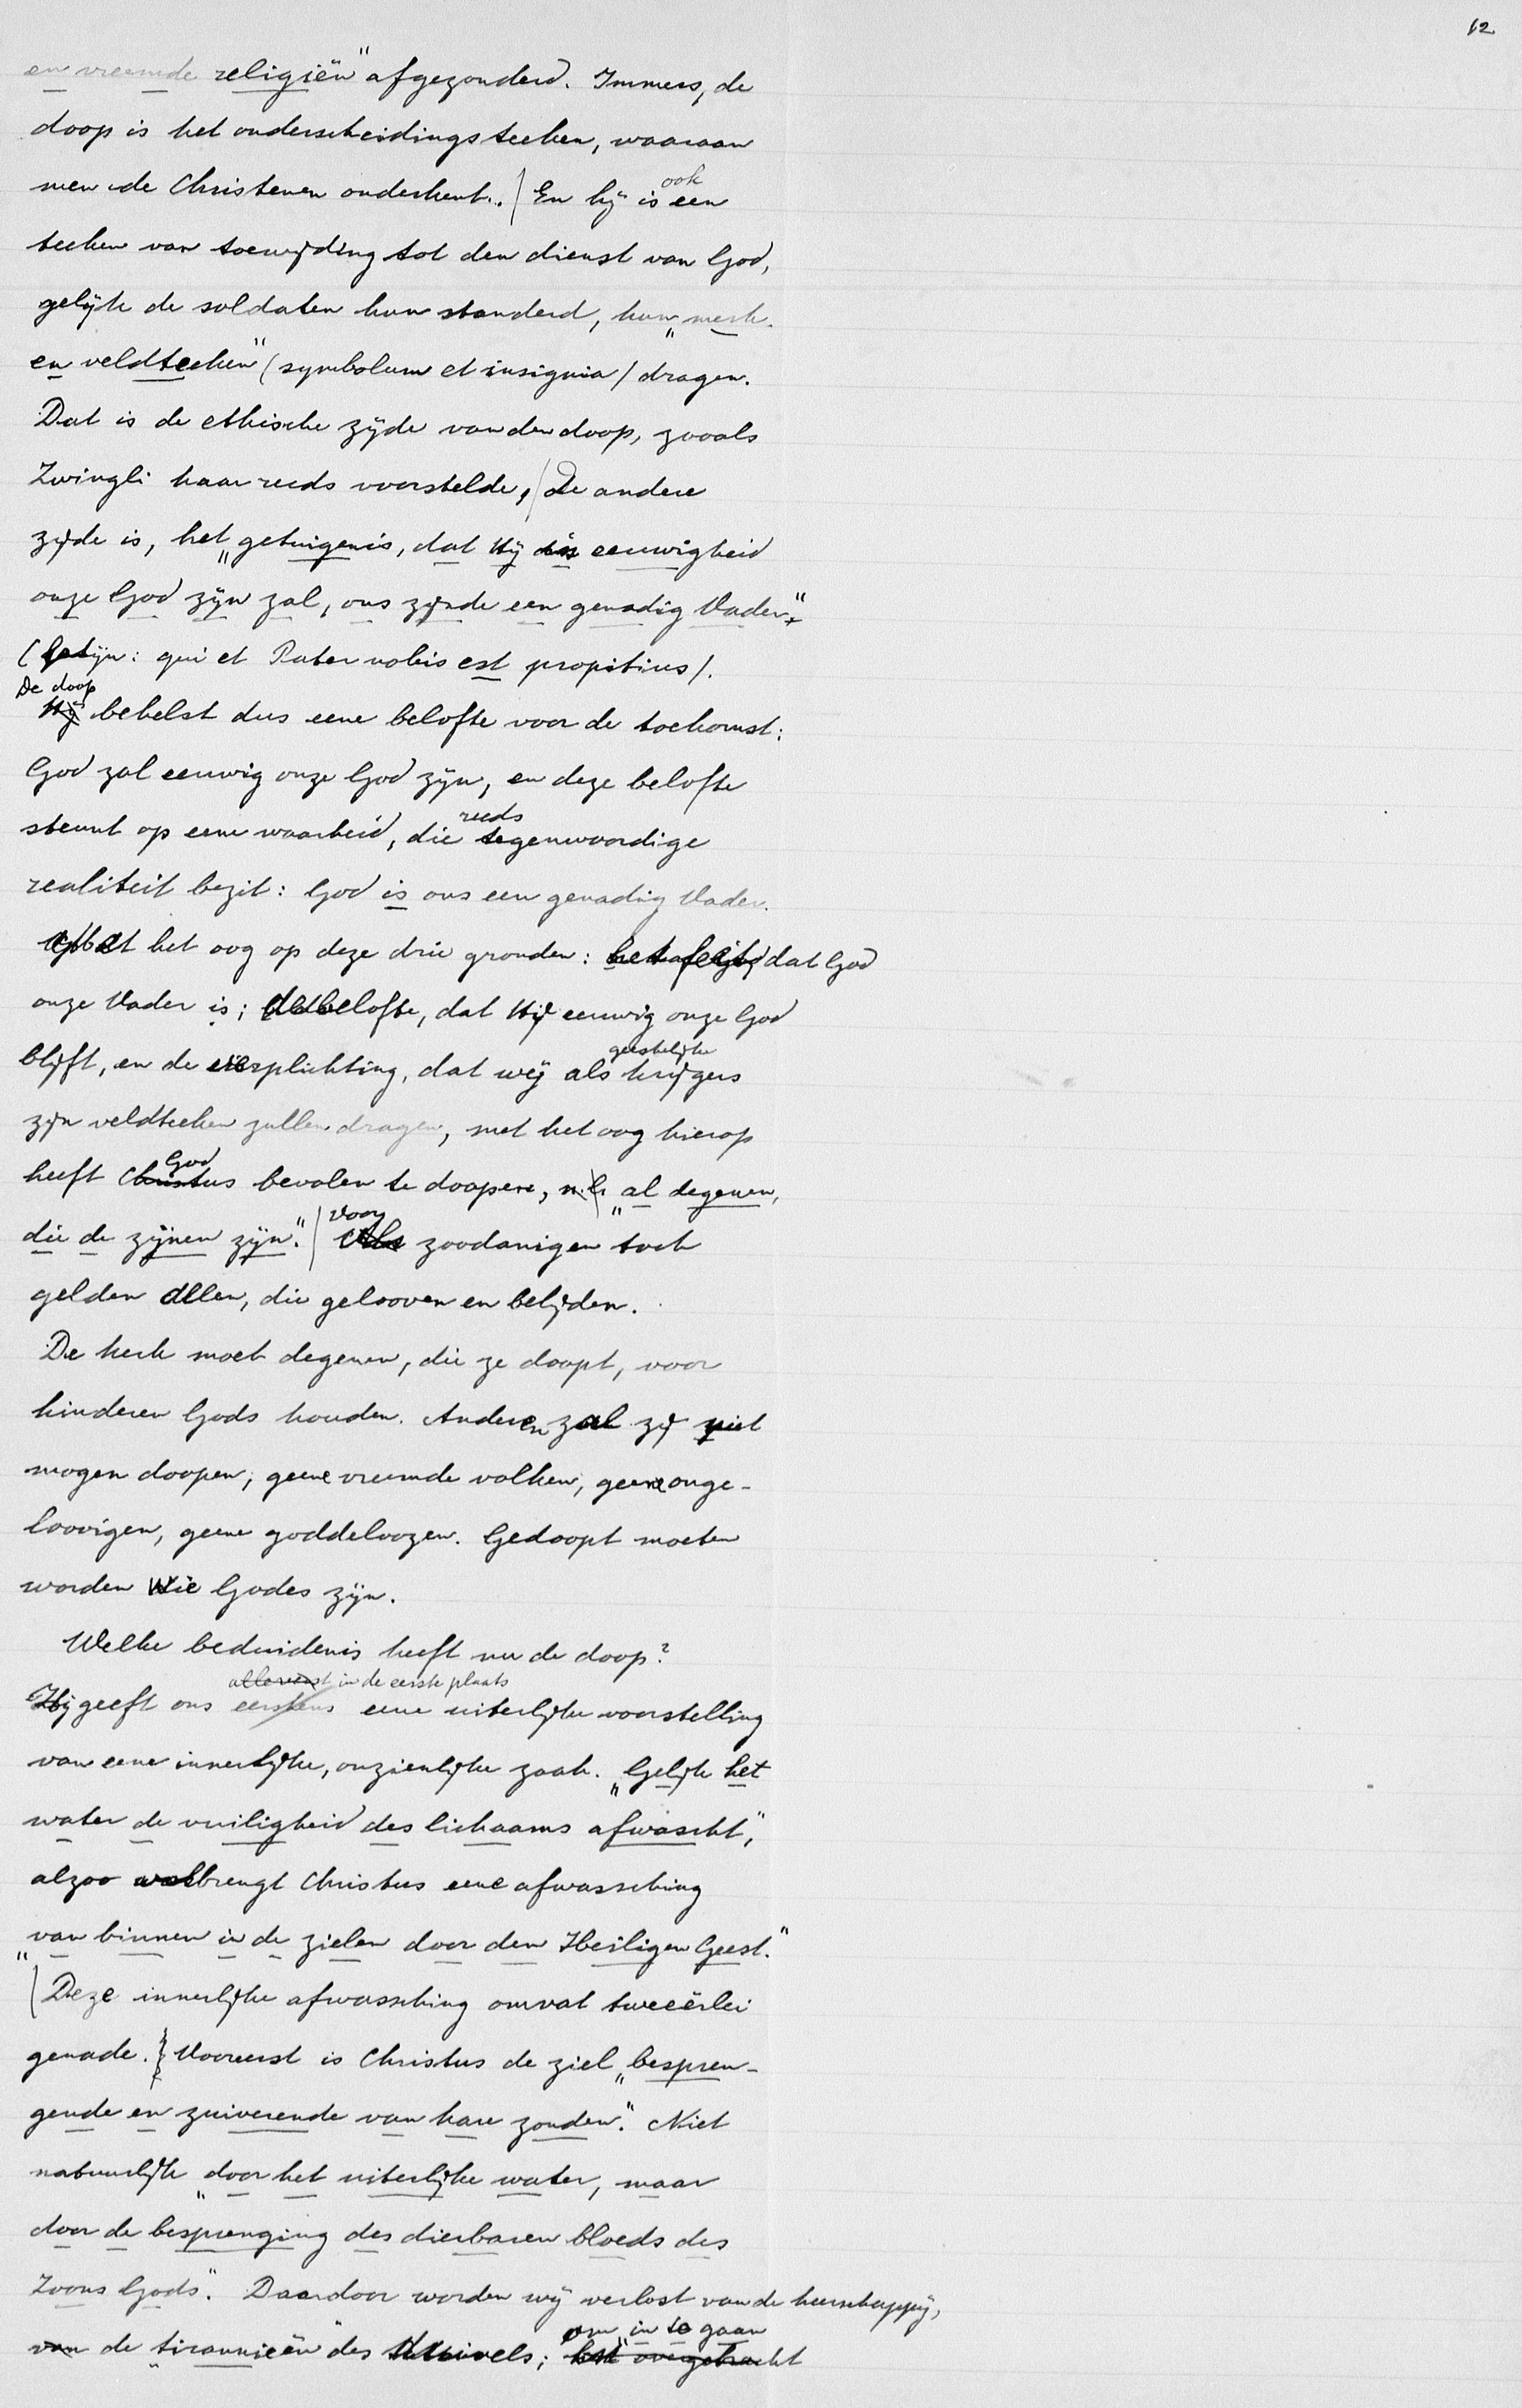 12
en vreemde religiën" afgezonderd. Immers, de
doop is het onderscheidingsteeken, waaraan
men de Christenen onderkent. En hij is ook een
teeken van toewijding tot den dienst van God,
gelijk de soldaten hun standerd, hun „merk-
en veldteeken" (symbolum et insignia) dragen.
Dat is de ethische zijde van den doop, zooals
Zwingli haar reeds voorstelde, De andere
zijde is, het „getuigenis, dat Hij in eeuwigheid
onze God zijn zal, ons zijnde een genadig Vader"
(Latijn: qui et Pater nobis est propitius).
De doop behelst dus eene belofte voor de toekomst:
God zal eeuwig onze God zijn, en deze belofte
steunt op eene waarheid, die reeds tegenwoordige
realiteit bezit: God is ons een genadig Vader.
Met het oog op deze drie gronden: dat God
onze Vader is; de belofte, dat Hij eeuwig onze God
blijft, en de verplichting, dat wij als geestelijke krijgers
zijn veldteeken zullen dragen, met het oog hierop
heeft God bevolen te doopen, „al degenen,
die de zijnen zijn". Voor zoodanigen toch
gelden allen, die gelooven en belijden.
De kerk moet degenen, die ze doopt, voor
kinderen Gods houden. Anderen zal zij niet
mogen doopen; geene vreemde volken, geene onge-
loovigen, geene goddeloozen. Gedoopt moeten
worden wie Godes zijn.
Welke beduidenis heeft nu de doop?
Hij geeft ons in de eerste plaats eene uiterlijke voorstelling
van eene innerlijke, onzienlijke zaak. „Gelijk het
water de vuiligheid des lichaams afwascht",
alzoo volbrengt Christus eene afwassching
„van binnen in de zielen door den Heiligen Geest."
Deze innerlijke afwassching omvat tweeërlei
genade. Vooreerst is Christus de ziel „bespren-
gende en zuiverende van hare zonden". Niet
natuurlijk „door het uiterlijke water, maar
door de besprenging des dierbaren bloeds des
Zoons Gods". Daardoor worden wij verlost van de heerschappij,
van de „tirannieën" des duivels; om „in te gaan